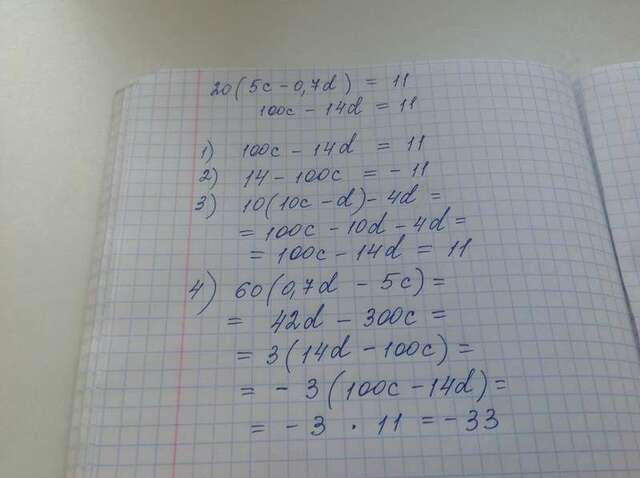 20(5c - 0,7d) = 11
100c - 14d = 11
1) 100c - 14d = 11
2) 14 - 100c = - 11
3) 10(10c - d) - 4d =
= 100c - 10d - 4d =
= 100c - 14d = 11
4) 60(0,7d - 5c) =
= 42d - 300c =
= 3(14d - 100c) =
= - 3(100c - 14d) =
= - 3 · 11 = - 33